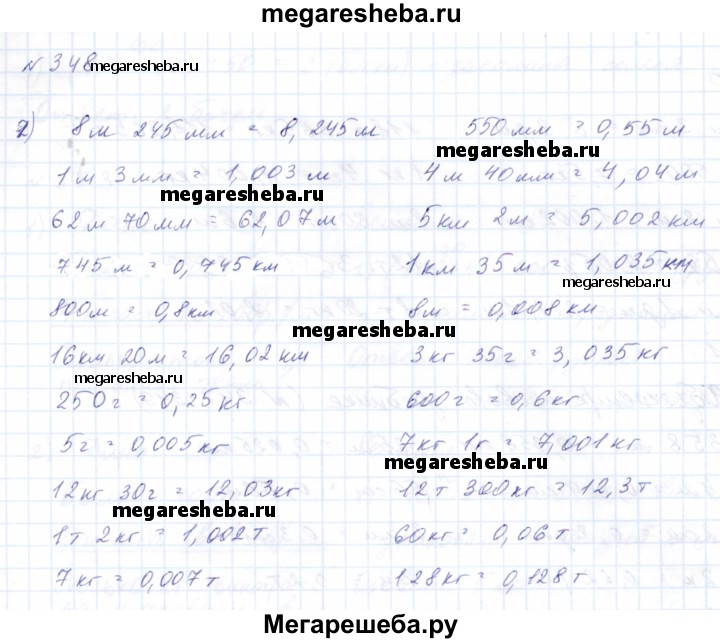 megaresheba.ru
N 348
megaresheba.ru
2) 8м 245мм = 8,245м 550мм = 0,55м
megaresheba.ru
1м 3мм = 1,003м 4м 40мм = 4,04м
megaresheba.ru
62м 70мм = 62,07м 5км 2м = 5,002км
745м = 0,745км 1км 35м = 1,035км
megaresheba.ru
800м = 0,8км 8м = 0,008км
megaresheba.ru
16км 20м = 16,02км 3кг 35г = 3,035кг
megaresheba.ru
250г = 0,25кг 600г = 0,6кг
5г = 0,005кг 7кг 1г = 7,001кг
megaresheba.ru
12кг 30г = 12,03кг 12т 300кг = 12,3т
megaresheba.ru
1т 2кг = 1,002т 60кг = 0,06т
7кг = 0,007т 128кг = 0,128т
Мегарешеба.ру